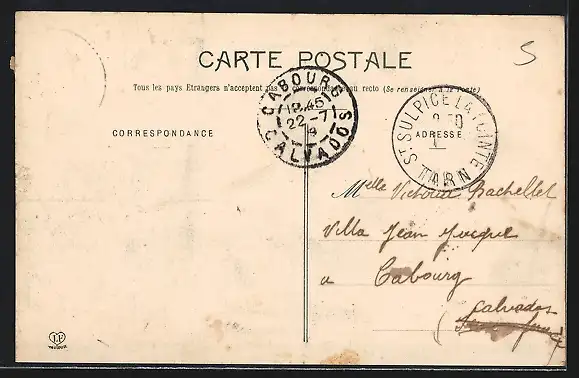 5
CARTE POSTALE
Tous les pays Etrangers n'acceptent pas la correspondance au recto (Se renseigner à la Poste)
CABOURG
12 45
22 - 7
CALVADOS
ST SULPICE LA POINTE
TARN
CORRESPONDANCE
ADRESSE
Melle Victoria Bachellet
Villa Jean Jacques
a Cabourg
Calvados
LF